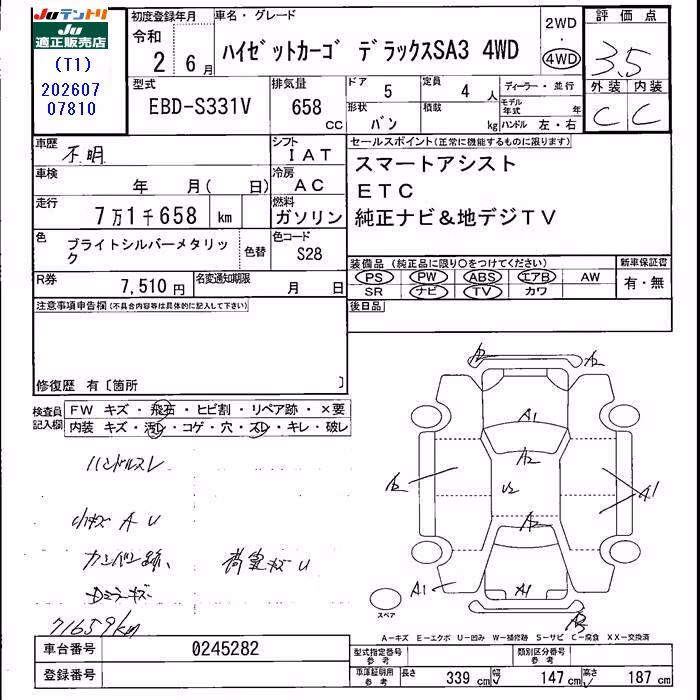 Juテントリ
Ju
適正販売店
(T1)
202607
07810
初度登録年月
令和
2 6月
車名・グレード
ハイゼットカーゴ デラックスSA3 4WD
2WD
・
4WD
評価点
3.5
外装 内装
C C
型式
EBD-S331V
排気量
658
CC
ドア
5
定員
4 人
形状
バン
積載
kg
ディーラー・並行
モデル年式 年
ハンドル 左・右
車歴
不明
シフト
IAT
車検
年 月( 日)
冷房
AC
走行
7万1千658 km
燃料
ガソリン
色
ブライトシルバーメタリック
色替
色コード
S28
R券
7,510円
名変通知期限
月 日
セールスポイント(正常に機能するものに限ります)
スマートアシスト
ETC
純正ナビ&地デジTV
装備品(純正品に限り○をつけてください)
PS PW ABS エアB AW
SR ナビ TV カワ
新車保証書
有・無
後日品
注意事項申告欄(不具合内容等は具体的に記入して下さい)
修復歴 有〔箇所 〕
検査員記入欄
FW キズ・飛石・ヒビ割・リペア跡・×要
内装 キズ・汚レ・コゲ・穴・スレ・キレ・破レ
ハンドルスレ
小キズ A U
カンバン跡、 荷室キズU
Dミラーキズ
71659km
A2 A2
A1
A2
A2 U2 A1
A2
A1 A1
スペア
A-キズ E-エクボ U-凹み W-補修跡 S-サビ C-腐食 XX-交換済
車台番号
0245282
登録番号
型式指定番号
参考
類別区分番号
参考
車庫証明用
参考
長さ 339cm 幅 147cm 高さ 187cm